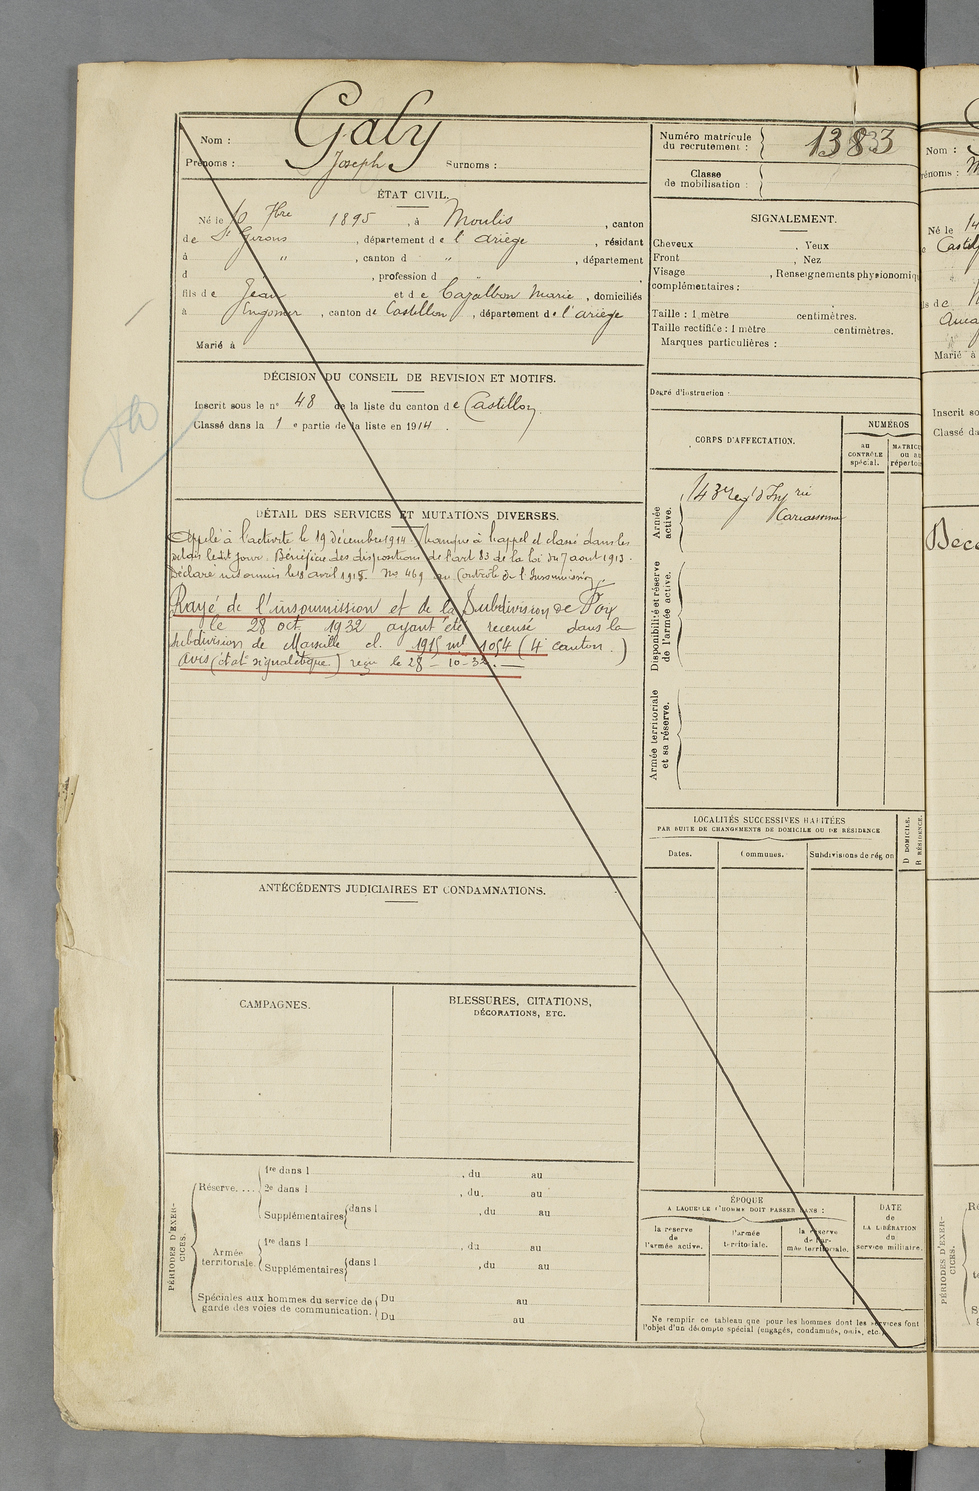 Nom : Galy
Prénoms : Joseph Surnoms :
Numéro matricule du recrutement : 1383
Classe de mobilisation :
ÉTAT CIVIL.
Né le 10 7bre 1895, à Moulis, canton
de St Girons, département de l'ariège, résidant
à ", canton d ", département
d , profession d "
fils de Jean et de Cazalbon Marie, domiciliés
à Engomer, canton de Castillon, département de l'ariège
Marié à
SIGNALEMENT.
Cheveux , Yeux
Front , Nez
Visage , Renseignements physionomiqu
complémentaires :
Taille : 1 mètre centimètres.
Taille rectifiée : 1 mètre centimètres.
Marques particulières :
Degré d'instruction :
DÉCISION DU CONSEIL DE REVISION ET MOTIFS.
Inscrit sous le n° 48 de la liste du canton de Castillon.
Classé dans la 1 e partie de la liste en 1914.
CORPS D'AFFECTATION.
NUMÉROS
au CONTRÔLE spécial.
MATRICU ou au répertoi
Armée active.
143e Regt d'Infrie
Carcassonne
Disponibilité et réserve de l'armée active.
Armée territoriale et sa réserve.
DÉTAIL DES SERVICES ET MUTATIONS DIVERSES.
Appelé à l'activité le 19 décembre 1914. Manque à l'appel et classé dans les
dit jour. Bénéficie des dispositions de l'art 13 de la loi du 7 aout 1913.
Déclaré insoumis le 18 avril 1915. No 469 au Controle de l'Insoumission
Rayé de l'insoumission et de la Subdivision de Foix
le 28 oct. 1932 ayant été recensé dans la
subdivision de Marseille cl. 1915 ml 1054 (4e canton.)
avis (état signalétique) reçu le 28-10-32.
LOCALITÉS SUCCESSIVES HABITÉES
PAR SUITE DE CHANGEMENTS DE DOMICILE OU DE RÉSIDENCE
Dates. Communes. Subdivisions de région
D DOMICILE.
R RÉSIDENCE.
ANTÉCÉDENTS JUDICIAIRES ET CONDAMNATIONS.
CAMPAGNES.
BLESSURES, CITATIONS,
DÉCORATIONS, ETC.
PÉRIODES D'EXERCICES.
Réserve....
1re dans l , du au
2e dans l , du au
Supplémentaires dans l , du au
Armée territoriale.
1re dans l , du au
Supplémentaires dans l , du au
Spéciales aux hommes du service de garde des voies de communication.
Du au
Du au
ÉPOQUE
A LAQUELLE L'HOMME DOIT PASSER DANS :
la réserve de l'armée active.
l'armée territoriale.
la réserve de l'armée territoriale.
DATE de LA LIBÉRATION du service militaire.
Ne remplir ce tableau que pour les hommes dont les services font
l'objet d'un décompte spécial (engagés, condamnés, omis, etc.)
Nom :
rénoms :
Né le 14
Castil
ils de
Marié à
Inscrit so
Classé da
PÉRIODES D'EXERCICES.